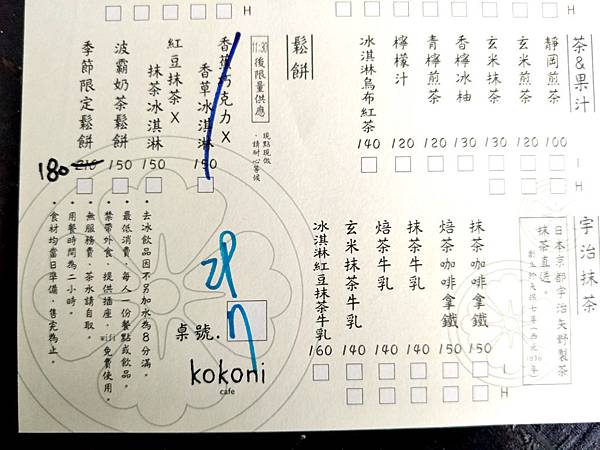 茶&果汁
靜岡煎茶 100
玄米煎茶 120
玄米抹茶 130
香檸冰柚 130
青檸煎茶 120
檸檬汁 120
冰淇淋烏布紅茶 140
I
H
鬆餅
11:30後限量供應
現點現做，請耐心等候
香蕉巧克力X
香草冰淇淋 150
紅豆抹茶X
抹茶冰淇淋 150
波霸奶茶鬆餅 150
季節限定鬆餅 210 180
H
宇治抹茶
日本京都宇治矢野製茶
抹茶直送。
抹茶咖啡拿鐵 150
焙茶咖啡拿鐵 150
抹茶牛乳 140
焙茶牛乳 140
玄米抹茶牛乳 140
冰淇淋紅豆抹茶牛乳 160
I
H
•去冰飲品因不另加水為8分滿。
•最低消費，每人一份餐點或飲品。
•禁帶外食，提供插座，wifi免費使用。
•無服務費，茶水請自取。
•用餐時間為二小時。
•食材均當日準備，售完為止。
桌號.
kokoni
cafe